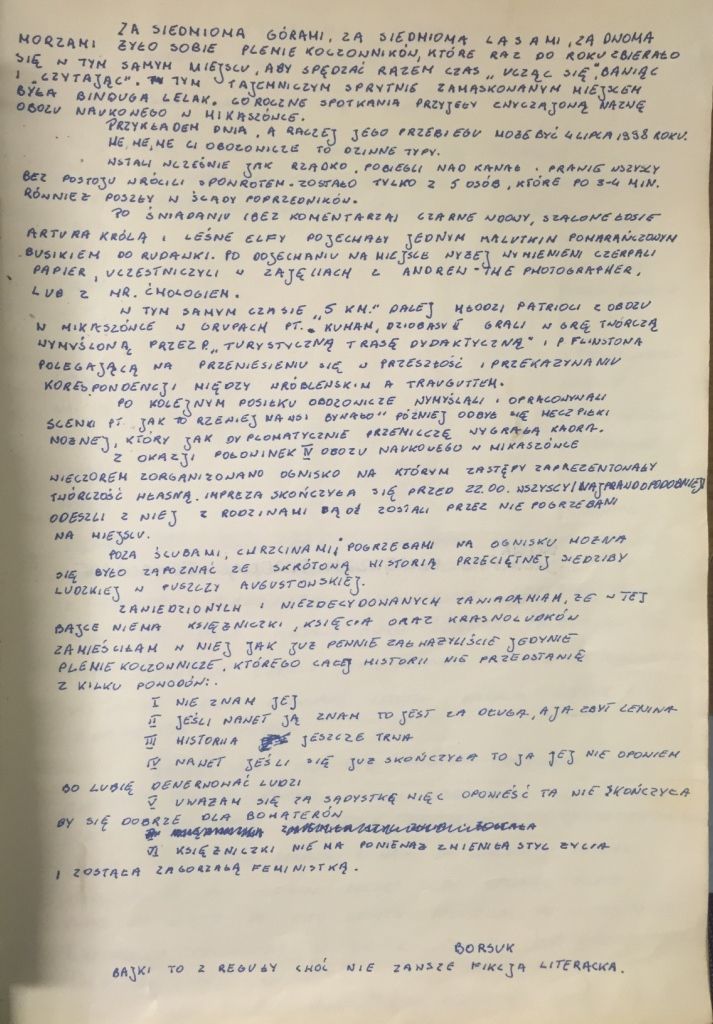 ZA SIEDMIOMA GÓRAMI, ZA SIEDMIOMA LASAMI, ZA DWOMA
MORZAMI ŻYŁO SOBIE PLEMIE KOCZOWNIKÓW, KTÓRE RAZ DO ROKU ZBIERAŁO
SIĘ W TYM SAMYM MIEJSCU, ABY SPĘDZAĆ RAZEM CZAS „UCZĄC SIĘ", BAWIĄC
I „CZYTAJĄC". TYM TAJEMNICZYM SPRYTNIE ZAMASKOWANYM MIEJSCEM
BYŁA BINDUGA LELAK. COROCZNE SPOTKANIA PRZYJEŁY ZWYCZAJOWĄ NAZWĘ
OBOZU NAUKOWEGO W MIKASZÓWCE.
PRZYKŁADEM DNIA, A RACZEJ JEGO PRZEBIEGU MOŻE BYĆ 4 LIPCA 1998 ROKU.
HE, HE, HE CI OBOZOWICZE TO DZIWNE TYPY.
WSTALI WCZEŚNIE JAK RZADKO, POBIEGLI NAD KANAŁ. PRAWIE WSZYSCY
BEZ POSTOJU WRÓCILI SPOWROTEM. ZOSTAŁO TYLKO Z 5 OSÓB, KTÓRE PO 3-4 MIN.
RÓWNIEŻ POSZŁY W ŚLADY POPRZEDNIKÓW.
PO ŚNIADANIU (BEZ KOMENTARZA) CZARNE WDOWY, SZALONE ŁOSIE
ARTURA KRÓLA I LEŚNE ELFY POJECHAŁY JEDNYM MALUTKIM POMARAŃCZOWYM
BUSIKIEM DO RUDAWKI. PO DOJECHANIU NA MIEJSCE WYŻEJ WYMIENIENI CZERPALI
PAPIER, UCZESTNICZYLI W ZAJĘCIACH Z ANDREW-THE PHOTOGRAPHER,
LUB Z MR. ĆMOLOGIEM.
W TYM SAMYM CZASIE „5 KM." DALEJ MŁODZI PATRIOCI Z OBOZU
W MIKASZÓWCE W GRUPACH PT. KUHAM, DZIOBASY II GRALI W GRĘ TWÓRCZĄ
WYMYŚLONĄ PRZEZ P. „TURYSTYCZNĄ TRASĘ DYDAKTYCZNĄ" I P FLINSTONA
POLEGAJĄCĄ NA PRZENIESIENIU SIĘ W PRZESZŁOŚĆ I PRZEKAZYWANIU
KORESPONDENCJI MIĘDZY WRÓBLEWSKIM A TRAUGUTTEM.
PO KOLEJNYM POSIŁKU OBOZOWICZE WYMYŚLALI I OPRACOWYWALI
SCENKI PT. JAK TO RZENIEJ NA WSI BYWAŁO" PÓŹNIEJ ODBYŁ SIĘ MECZ PIŁKI
NOŻNEJ, KTÓRY JAK DYPLOMATYCZNIE PRZEMILCZĘ WYGRAŁA KADRA.
Z OKAZJI POŁOWINEK IV OBOZU NAUKOWEGO W MIKASZÓWCE
WIECZOREM ZORGANIZOWANO OGNISKO NA KTÓRYM ZASTĘPY ZAPREZENTOWAŁY
TWÓRCZOŚĆ WŁASNĄ. IMPREZA SKOŃCZYŁA SIĘ PRZED 22.00. WSZYSCY (NAJPRAWDOPODOBNIEJ)
ODESZLI Z NIEJ Z RODZINAMI BĄDŹ ZOSTALI PRZEZ NIE POGRZEBANI
NA MIEJSCU.
POZA ŚLUBAMI, CHRZCINAMI, POGRZEBAMI NA OGNISKU MOŻNA
SIĘ BYŁO ZAPOZNAĆ ZE SKRÓTONĄ HISTORIĄ PRZECIĘTNEJ SIEDZIBY
LUDZKIEJ W PUSZCZY AUGUSTOWSKIEJ.
ZAWIEDZIONYCH I NIEZDECYDOWANYCH ZAWIADAMIAM, ŻE W TEJ
BAJCE NIEMA KSIĘŻNICZKI, KSIĘCIA ORAZ KRASNOLUDKÓW
ZAMIEŚCIŁAM W NIEJ JAK JUŻ PEWNIE ZAUWAŻYLIŚCIE JEDYNIE
PLEMIE KOCZOWNICZE, KTÓREGO CAŁEJ HISTORII NIE PRZEDSTAWIĘ
Z KILKU POWODÓW:
I NIE ZNAM JEJ
II JEŚLI NAWET JĄ ZNAM TO JEST ZA DŁUGA, A JA ZBYT LENIWA
III HISTORIIA JESZCZE TRWA
IV NAWET JEŚLI SIĘ JUŻ SKOŃCZYŁA TO JA JEJ NIE OPOWIEM
BO LUBIĘ DENERWOWAĆ LUDZI
V UWAŻAM SIĘ ZA SADYSTKĘ WIĘC OPOWIEŚĆ TA NIE SKOŃCZYŁA
BY SIĘ DOBRZE DLA BOHATERÓW
VI KSIĘŻNICZKI NIE MA PONIEWAŻ ZMIENIŁA STYL ŻYCIA
I ZOSTAŁA ZAGORZAŁĄ FEMINISTKĄ.
BORSUK
BAJKI TO Z REGUŁY CHOĆ NIE ZAWSZE FIKCJA LITERACKA.